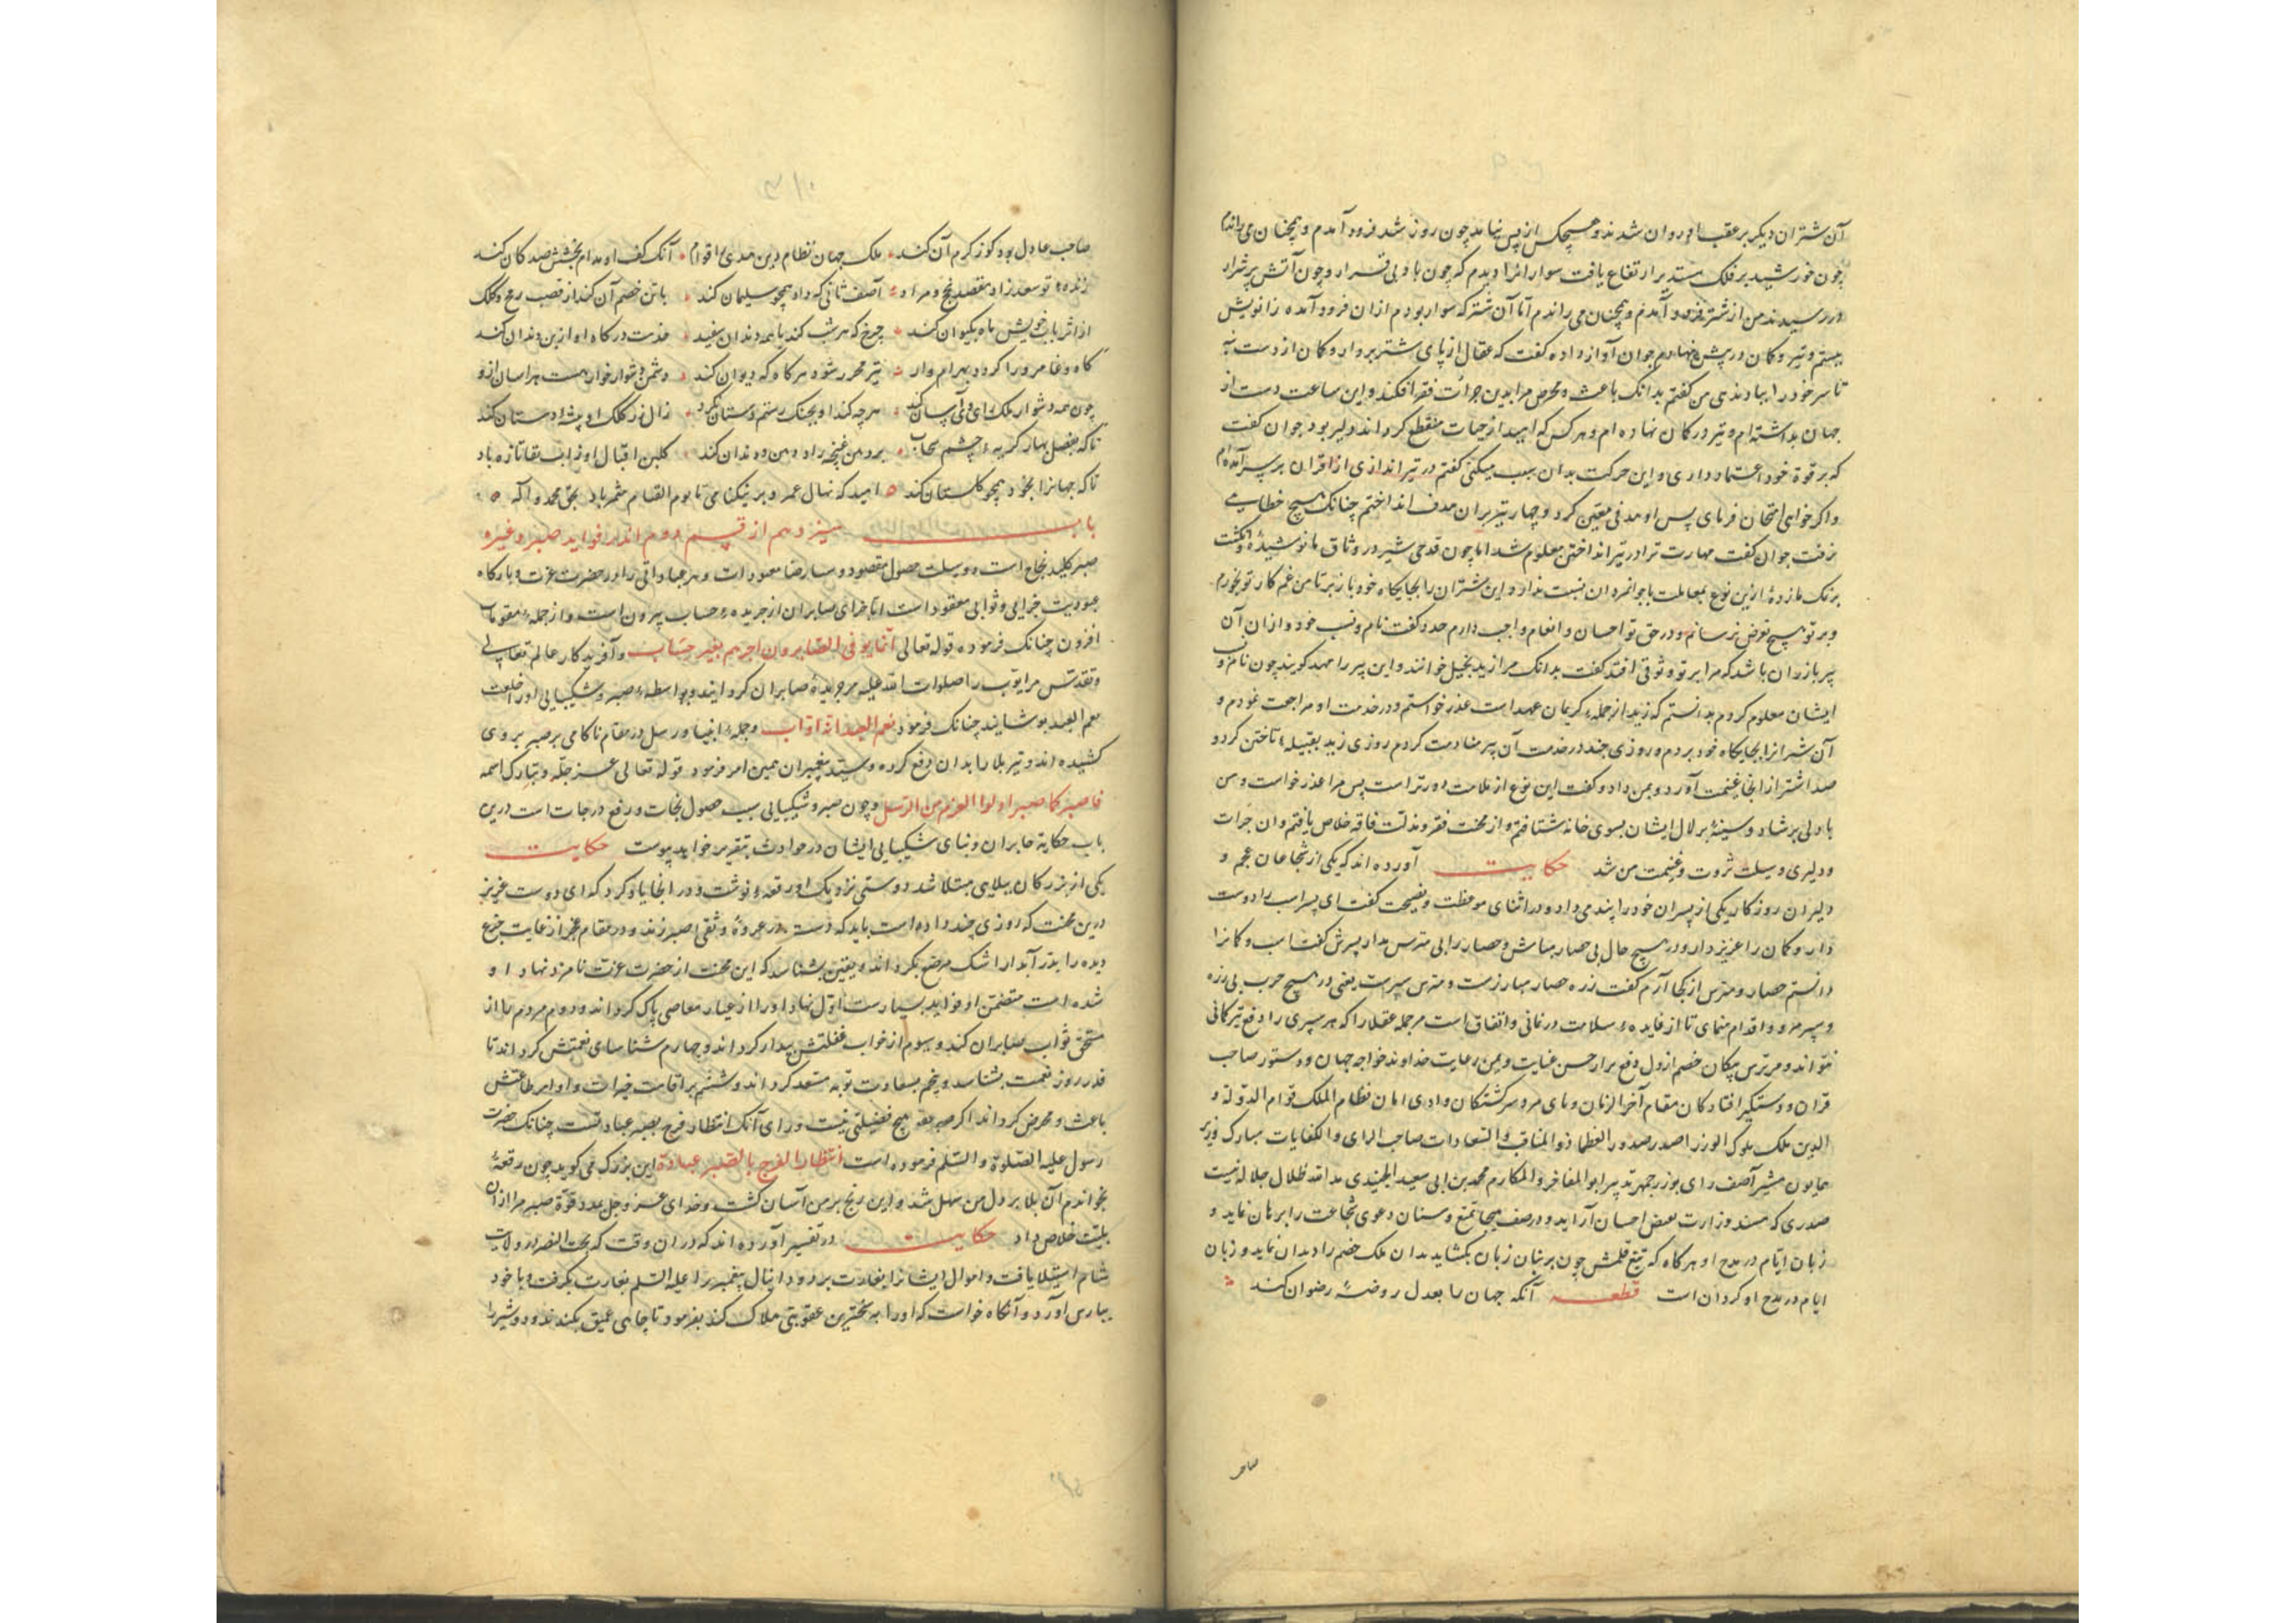 آن شتران دیگر بر عقب او روان شدند و هیچکس از پس نیامد چون روز شد فرود آمدم و همچنان می راندم
چون خورشید بر فلک مستدیر ارتفاع یافت سواران را دیدم که چون باد بی قرار و چون آتش پر شرار
در رسیدند من از شتر فرود آمدم و همچنان می راندم تا آن شتر که سوار بودم از ان فرود آمده زانویش
ببستم و تیر و کمان در پیش نهادم جوان آواز داده گفت که عقال از پای شتر بردار و کمان از دست بنه
تا سر خود را بباد ندهی من گفتم بدانک باعث و محرض مرا بدین جرات فقر افکند و این ساعت دست از
جهان بداشته ام و تیر در کمان نهاده ام و هر کس که امید از حیات منقطع کرداند دلیر بود جوان گفت
که بر قوة خود اعتماد داری و این حرکت بدان سبب میکنی گفتم در تیر اندازی از اقران بر سر آمده ام
و اکر خواهی امتحان فرمای پس او هدفی معین کرد و چهار تیر بران هدف انداختم چنانک هیچ خطایی
نرفت جوان گفت مهارت ترا در تیر انداختن معلوم شد اما چون قدحی شیر در وثاق ما نوشیدهٔ و انگشت
بر نمک ما زدهٔ ازین نوع معاملت با جوانمردان نسبت ندارد و این شتران را بجایکاه خود باز بر تا من غم کار تو بخورم
و بر تو هیچ تعرض نرسانم و در حق تو احسان و انعام واجب دارم حدو گفت نام و نسب خود و از ان آن
پیر باز ران باشد که مرا بر تو وثوقی افتد گفت بدانک مرا زید بخیل خوانند و این پیر را مهد کویند چون نام و
ایشان معلوم کردم بدانستم که زید از جمله کریمان عهد است عذر خواستم و در خدمت او مراجعت نمودم و
آن شتر انرا بجایکاه خود بردم و روزی چند در خدمت آن پیر منادمت کردم روزی زید بقبیلهٔ تاختن کرد و
صد اشتر از انجا غنیمت آورد و بمن داد و گفت این نوع از ملامت دورتر است پس مرا عذر خواست و من
با دلی پر شاد و سینهٔ بر لال ایشان بسوی خانه شتافتم و از محنت فقر و مذلت فاقه خلاص یافتم و ان جرات
و دلیری وسیلت ثروت و غنیمت من شد حکایت آورده اند که یکی از شجاعان عجم و
دلیران روزکار یکی از پسران خود را پند می داد و در اثنای موعظت و نصیحت گفت ای پسر اسب را دوست
دار و کمان را عزیز دار و در هیچ حال بی حصار مباش و حصار را بی مترس مدار پسرش گفت اسب و کمانرا
دانستم حصار و مترس از کجا آرم گفت زره حصار مبارزست و مترس سپرست یعنی در هیچ حرب بی زره
و سپر مرو و اقدام منمای تا از فایدهٔ سلامت در نمانی و اتفاق است مر جمله عقلا را که هر سپری را دفع تیر کمانی
نتواند و مر ترس پیکان خصم از دل دفع برار حسن عنایت و یمن رعایت خداوند خواجه جهان و دستور صاحب
قران و دستگیر افتادکان مقام آخر الزمان و مای مر و سر گشتگان وادی امان نظام الملک قوام الدولة و
الدین ملک ملوک الوزرا صدر صدور العظما ذو المناقب و السعادات صاحب الرای و الکفایات مبارک وزیر
همایون مشیر آصف رای بوزرجمهر تدبیر ابو المفاخر و المکارم محمد بن ابی سعید الجنیدی مد الله ظلال جلاله نیست
صدری که مسند وزارت بمحض احسان آراید و در صف هیجا بتیغ و سنان دعوی شجاعت را برهان نماید و
زبان ایام در مدح او هر کاه که تیغ قلمش چون بر بنان زبان بکشاید بدان ملک خصم را دندان نماید و زبان
ایام در مدح او کردان است قطعه آنکه جهان را بعدل روضهٔ رضوان کند
صاحب
صاحب عادل بود کوز کرم آن کند ملک جهان نظام دین هدی اقوام آنک کف او مدام بخشش صد کان کند
زنده تو سعد زاد مقصد نجح و مراد آصف ثانی که داد همچو سلیمان کند با تن خصم آن کند از قصب رمح و کلک
از اثر باب خویش ماه بکیوان کند چرخ که هر شب کند با همه دندان سفید خدمت درکاه او از بن دندان کند
کاه وغا مرورا کرده بهرام وار تیر محرر شود هر کاه که دیوان کند دشمن دشوار خوار هست هراسان ازو
چون همه دشوار ملک رای وی آسان کند هر چه کند او بجنک رستم دستان نکرد زال زر کلک او پیشه دستان کند
تا که بفصل بهار کریهٔ چشم سحاب بر دهن غنچه را دهن و دندان کند کلبن اقبال او ز اب بقا تازه باد
تا که جهانرا بجود همچو کلستان کند امید که نهال عمر و بر نیکنامی تا یوم القیام مثمر باد بحق محمد و آله
باب سیزدهم از قسم دوم اندر فواید صبر و غیره
صبر کلید نجاح است و وسیلت حصول مقصود و سار رضا معبود است و هر عباداتی را در حضرت عزت و بارکاه
عبودیت جزایی و ثوابی معقود است اما جزای صابران از جریدهٔ حساب بیرون است و از جمله مثوبات
افزون چنانک فرموده قوله تعالی انما یوفی الصابرون اجرهم بغیر حساب و آفریدکار عالم تعالی
و تقدس مر ایوب را صلوات الله علیه سر جریدهٔ صابران کردانید و بواسطهٔ صبر و شکیبایی او را خلعت
نعم العبد پوشانید چنانک فرمود نعم العبد انه اواب و جملهٔ انبیا و رسل در مقام ناکامی بر صبر بر روی
کشیده اند و تیر بلا را بدان دفع کرده و سید پیغمبران همین امر فرمود قوله تعالی عز جله و تبارک اسمه
فاصبر کما صبر اولوا العزم من الرسل و چون صبر و شکیبایی سبب حصول نجات و رفع درجات است درین
باب حکایة صابران و بنای شکیبایی ایشان در حوادث بتقریر خواهد پیوست حکایت
یکی از بزرکان ببلایی مبتلا شد دوستی نزدیک او رقعهٔ نوشت و در انجا یاد کرد که ای دوست عزیز
درین محنت که روزی چند داده است باید که دست در عروهٔ وثقی صبر زند و در مقام عجز از غایت جزع
دیده را بدر آبدار اشک مرصع نکرداند و یقین بشناسد که این محنت از حضرت عزت نامزد نهاد او
شده است متضمن او فواید بسیارست اول نهاد او را از عیار معاصی پاک کرداند و دوم مردم را از
مستحق ثواب صابران کند و سیوم از خواب غفلتش بیدار کرداند و چهارم شناسای نعمتش کرداند تا
قدر روز نعمت بشناسد و پنجم بسعادت توبه مستعد کرداند و ششم بر اقامت خیرات و اوامر طاعتش
باعث و محرض کرداند اکر صبر بعد هیچ فضیلتی نیست ورای آنک انتظار فرج بصبر عبادتست چنانک حضرت
رسول علیه الصلوة و السلم فرموده است انتظار الفرج بالصبر عبادة این بزرک می کوید چون رقعهٔ
بخواندم آن بلا بر دل من سهل شد و این رنج بر من آسان گشت و خدای عز و جل بمدد قوة صبر مرا از ان
بلیت خلاص داد حکایت در تفسیر آورده اند که در ان وقت که بخت النصر در ولایت
شام استیلا یافت و اموال ایشانرا بغارت برد و دانیال پیغمبر را علیه السلم بغارت بکرفت و با خود
بپارس آورد و آنگاه خواست که او را به سخترین عقوبتی هلاک کند بفرمود تا چاهی عمیق بکندند و دو شیر را